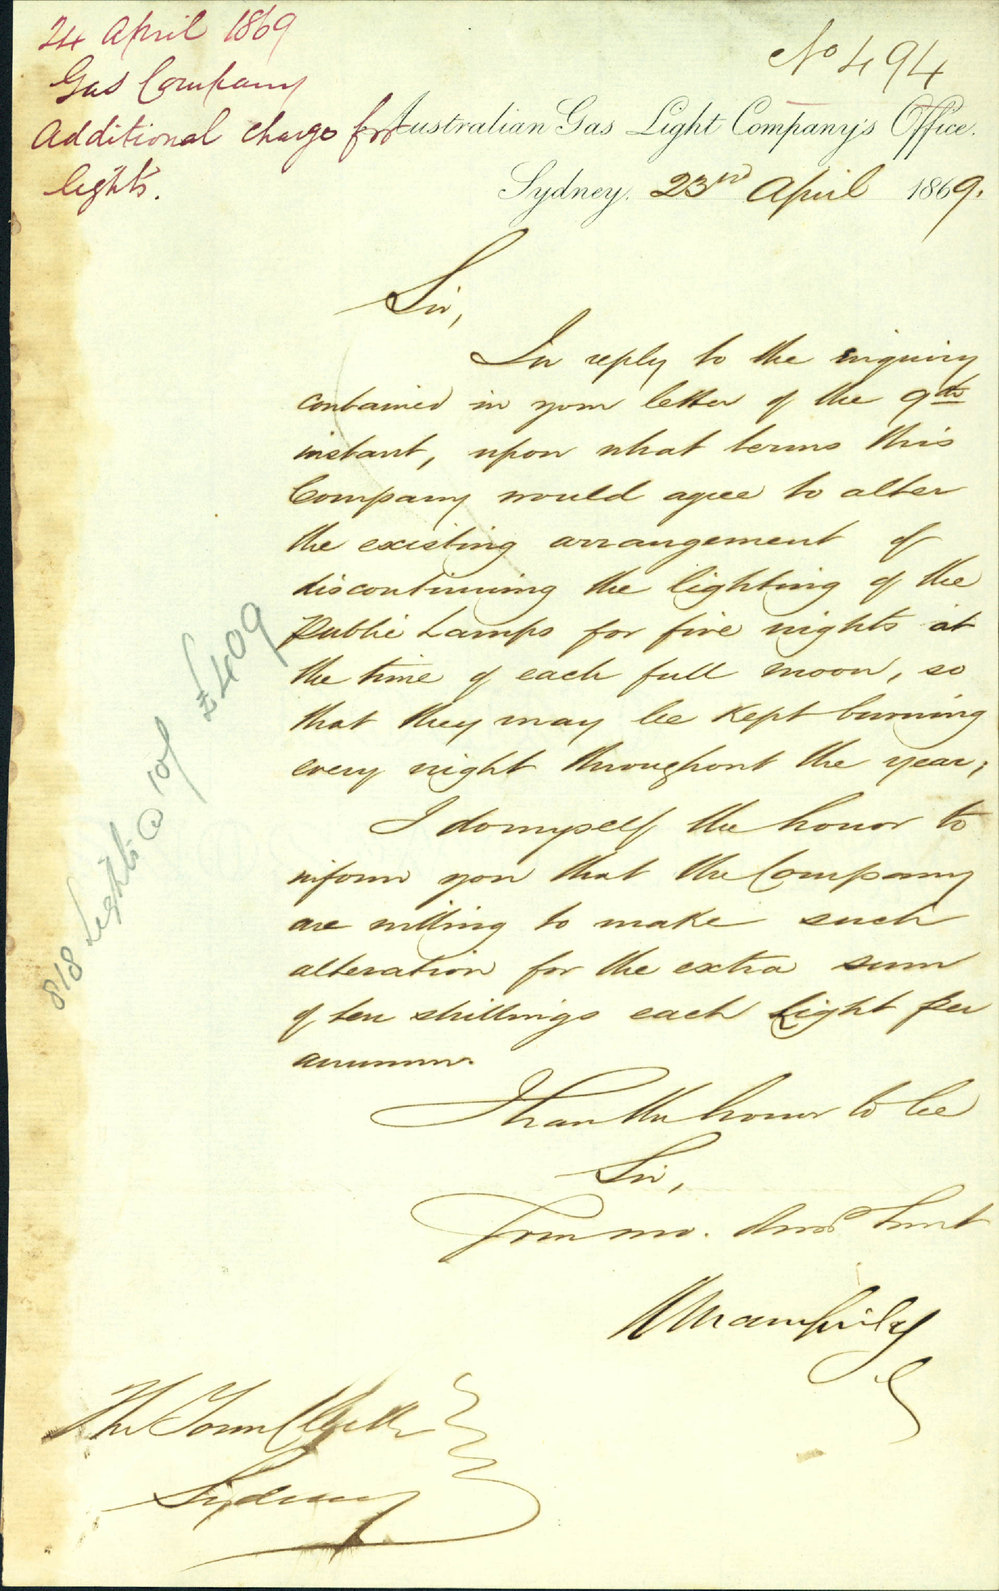 24 April 1869
Gas Company
Additional charge for
lights.
No 494
Australian Gas Light Company's Office.
Sydney, 23rd April 1869.
Sir,
In reply to the inquiry
contained in your letter of the 9th
instant, upon what terms this
Company would agree to alter
the existing arrangement of
discontinuing the lighting of the
Public Lamps for five nights at
the time of each full moon, so
that they may be kept burning
every night throughout the year;
I do myself the honor to
inform you that the Company
are willing to make such
alteration for the extra sum
of ten shillings each light per
annum.
818 Lights @ 10/ £409
I have the honor to be
Sir,
Your mo. Obed Servt
The Town Clerk
Sydney